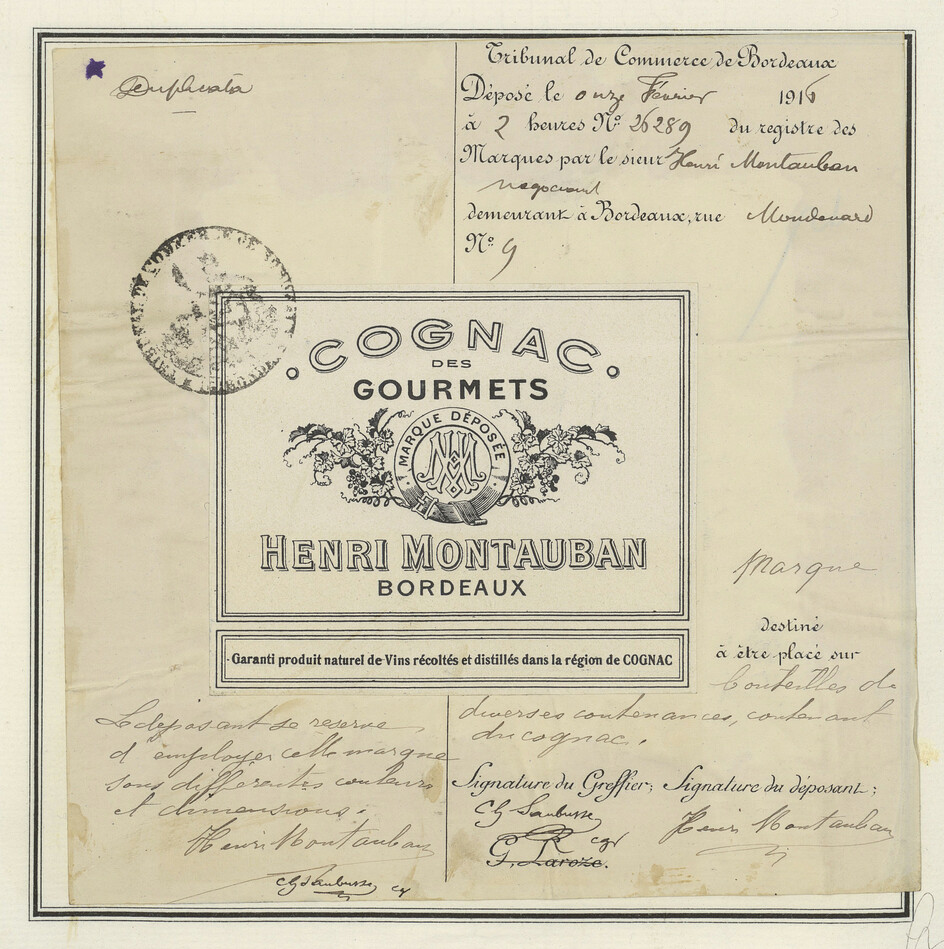 Duplicata
Tribunal de Commerce de Bordeaux
Déposé le onze Février 1916
à 2 heures Nº 26289 du registre des
Marques par le sieur Henri Montauban
négociant
demeurant à Bordeaux, rue Mondenard
Nº 9
COGNAC
DES
GOURMETS
MARQUE DÉPOSÉE
HENRI MONTAUBAN
BORDEAUX
Garanti produit naturel de Vins récoltés et distillés dans la région de COGNAC
Marque
destiné
à être placé sur
bouteilles de
diverses contenances, contenant
du cognac.
Le déposant se réserve
d'employer cette marque
sous différentes couleurs
et dimensions.
Henri Montauban
Signature du Greffier; Signature du déposant;
Henri Montauban
G. Laroze.